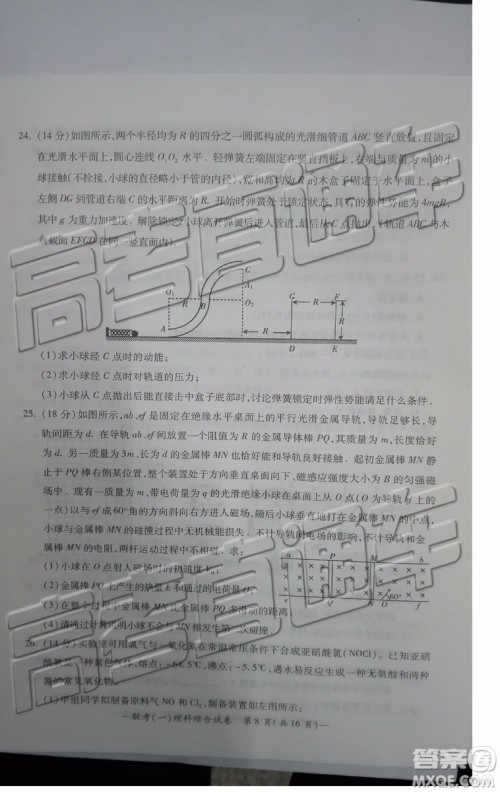 24. (14 分)如图所示,两个半径均为 R 的四分之一圆弧构成的光滑细管道 ABC 竖直放置,且固定
在光滑水平面上,圆心连线 O₁O₂ 水平。轻弹簧左端固定在竖直挡板上,右端与质量为 m 的小
球接触(不拴接,小球的直径略小于管的内径),宽和高均为 R 的木盒子固定于水平面上,盒子
左侧 DG 到管道右端 C 的水平距离为 R。开始时弹簧处于锁定状态,具有的弹性势能为 4mgR,
其中 g 为重力加速度。解除锁定,小球离开弹簧后进入管道,最后从 C 点抛出。(轨道 ABC 与木
盒截面 EFGD 在同一竖直面内)
O₁ R B O₂ C A₁ A R G R F R D E
(1)求小球经 C 点时的动能;
(2)求小球经 C 点时对轨道的压力;
(3)小球从 C 点抛出后能直接击中盒子底部时,讨论弹簧锁定时弹性势能满足什么条件。
25. (18 分)如图所示,ab、ef 是固定在绝缘水平桌面上的平行光滑金属导轨,导轨足够长,导
轨间距为 d。在导轨 ab、ef 间放置一个阻值为 R 的金属导体棒 PQ,其质量为 m,长度恰好为
d。另一质量为 3m、长为 d 的金属棒 MN 也恰好能和导轨良好接触。起初金属棒 MN 静止
于 PQ 棒右侧某位置,整个装置处于方向垂直桌面向下、磁感应强度大小为 B 的匀强磁
场中。现有一质量为 m、带电荷量为 q 的光滑绝缘小球在桌面上从 O 点(O 为导轨 ef 上的
一点)以与 ef 成60°角的方向斜向左方射入磁场,随后小球垂直地打在金属棒 MN 的中点,
小球与金属棒 MN 的碰撞过程无机械能损失。不计导轨间电场的影响,不计导轨和金属
棒 MN 的电阻,两棒运动过程中不相碰。求:
(1)小球在 O 点射入磁场时的初速度 v₀;
(2)金属棒 PQ 上产生的热量 E 和通过的电荷量 Q。
(3)在整个过程中金属棒 MN 比金属棒 PQ 多滑动的距离;
(4)请通过计算说明小球不会与 MN 棒发生第二次碰撞。
a P M b
e Q N O f 60°
26. (14 分)实验室可用氯气与一氧化氮在常温常压条件下合成亚硝酰氯(NOCl)。已知亚硝
酰氯是一种黄色气体,熔点:-64.5℃,沸点:-5.5℃,遇水易反应生成一种氢化物和两种
常见的氧化物。
(1)甲组同学拟制备原料气 NO 和 Cl₂,制备装置如如图所示:
—联考(一)理科综合试卷 第 8 页(共 16 页)—
高考直通车
高考直通车
答案圈
MXQE.COM